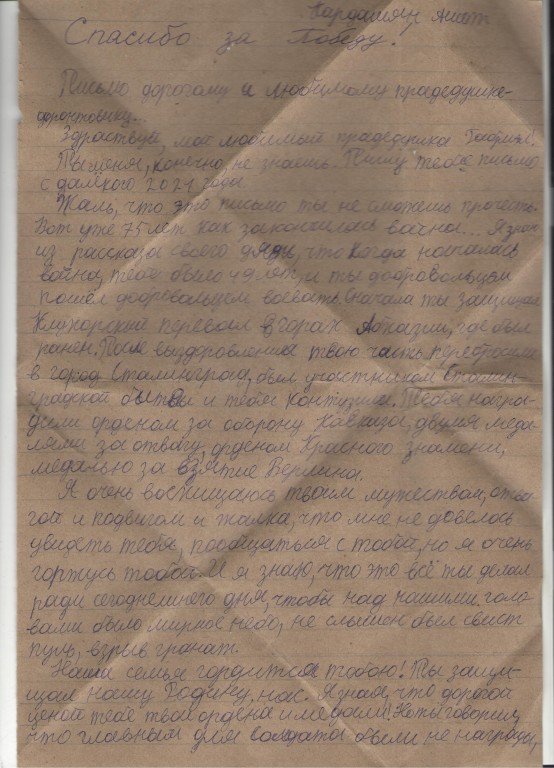 Кардашян Ашот
Спасибо за Победу!
Письмо дорогому и любимому прадедушке-
фронтовику...
Здраствуй, мой любимый прадедушка Гаврил!
Ты меня, конечно, не знаешь. Пишу тебе письмо
с далкого 2021 года.
Жаль, что это письмо ты не сможешь прочесть.
Вот уже 75 лет как закончилась война... Я знаю
из рассказа своего дяди, что когда началась
война, тебе было лет, и ты добровольцем
пошёл добровальцем воевать. Сначала ты защищал
Клухорский перевал в горах Абхазии, где был
ранен. После выздоровления твою часть перебросили
в город Сталинград, был участником Сталин-
градской битвы и тебя контузили. Тебя награ-
дили орденом за оборону Кавказа, двумя меда-
лями за отвагу, орденом Красного знамени,
медалью за взятие Берлина.
Я очень восхищаюсь твоим мужеством, отва-
гой и подвигом и жалка, что мне не довелось
увидеть тебя, пообщаться с тобой, но я очень
горжусь тобой. И я знаю, что это всё ты делал
ради сегоднешнего дня, чтобы над нашими голо-
вами было мирное небо, не слышен был свист
пуль, взрыв гранат.
Наша семья гордится тобою! Ты защи-
щал нашу Родину, нас. Я знаю, что дорогой
ценой тебе твои ордена и медали! Но ты говорил,
что главным для солдата были не награды,